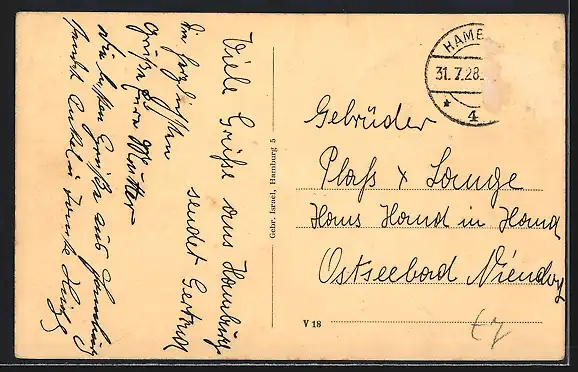 Viele Grüße aus Hamburg
sendet Gertrud
die herzlichsten
Grüße Eure Mutter
die besten Grüße aus Hamburg
sendet Onkel u Tante
Gebr. Israel, Hamburg 5
HAMB
31.7.28.
* 4
Gebrüder
Plaß & Lange
Haus Hand in Hand
Ostseebad Niendorf
V 18